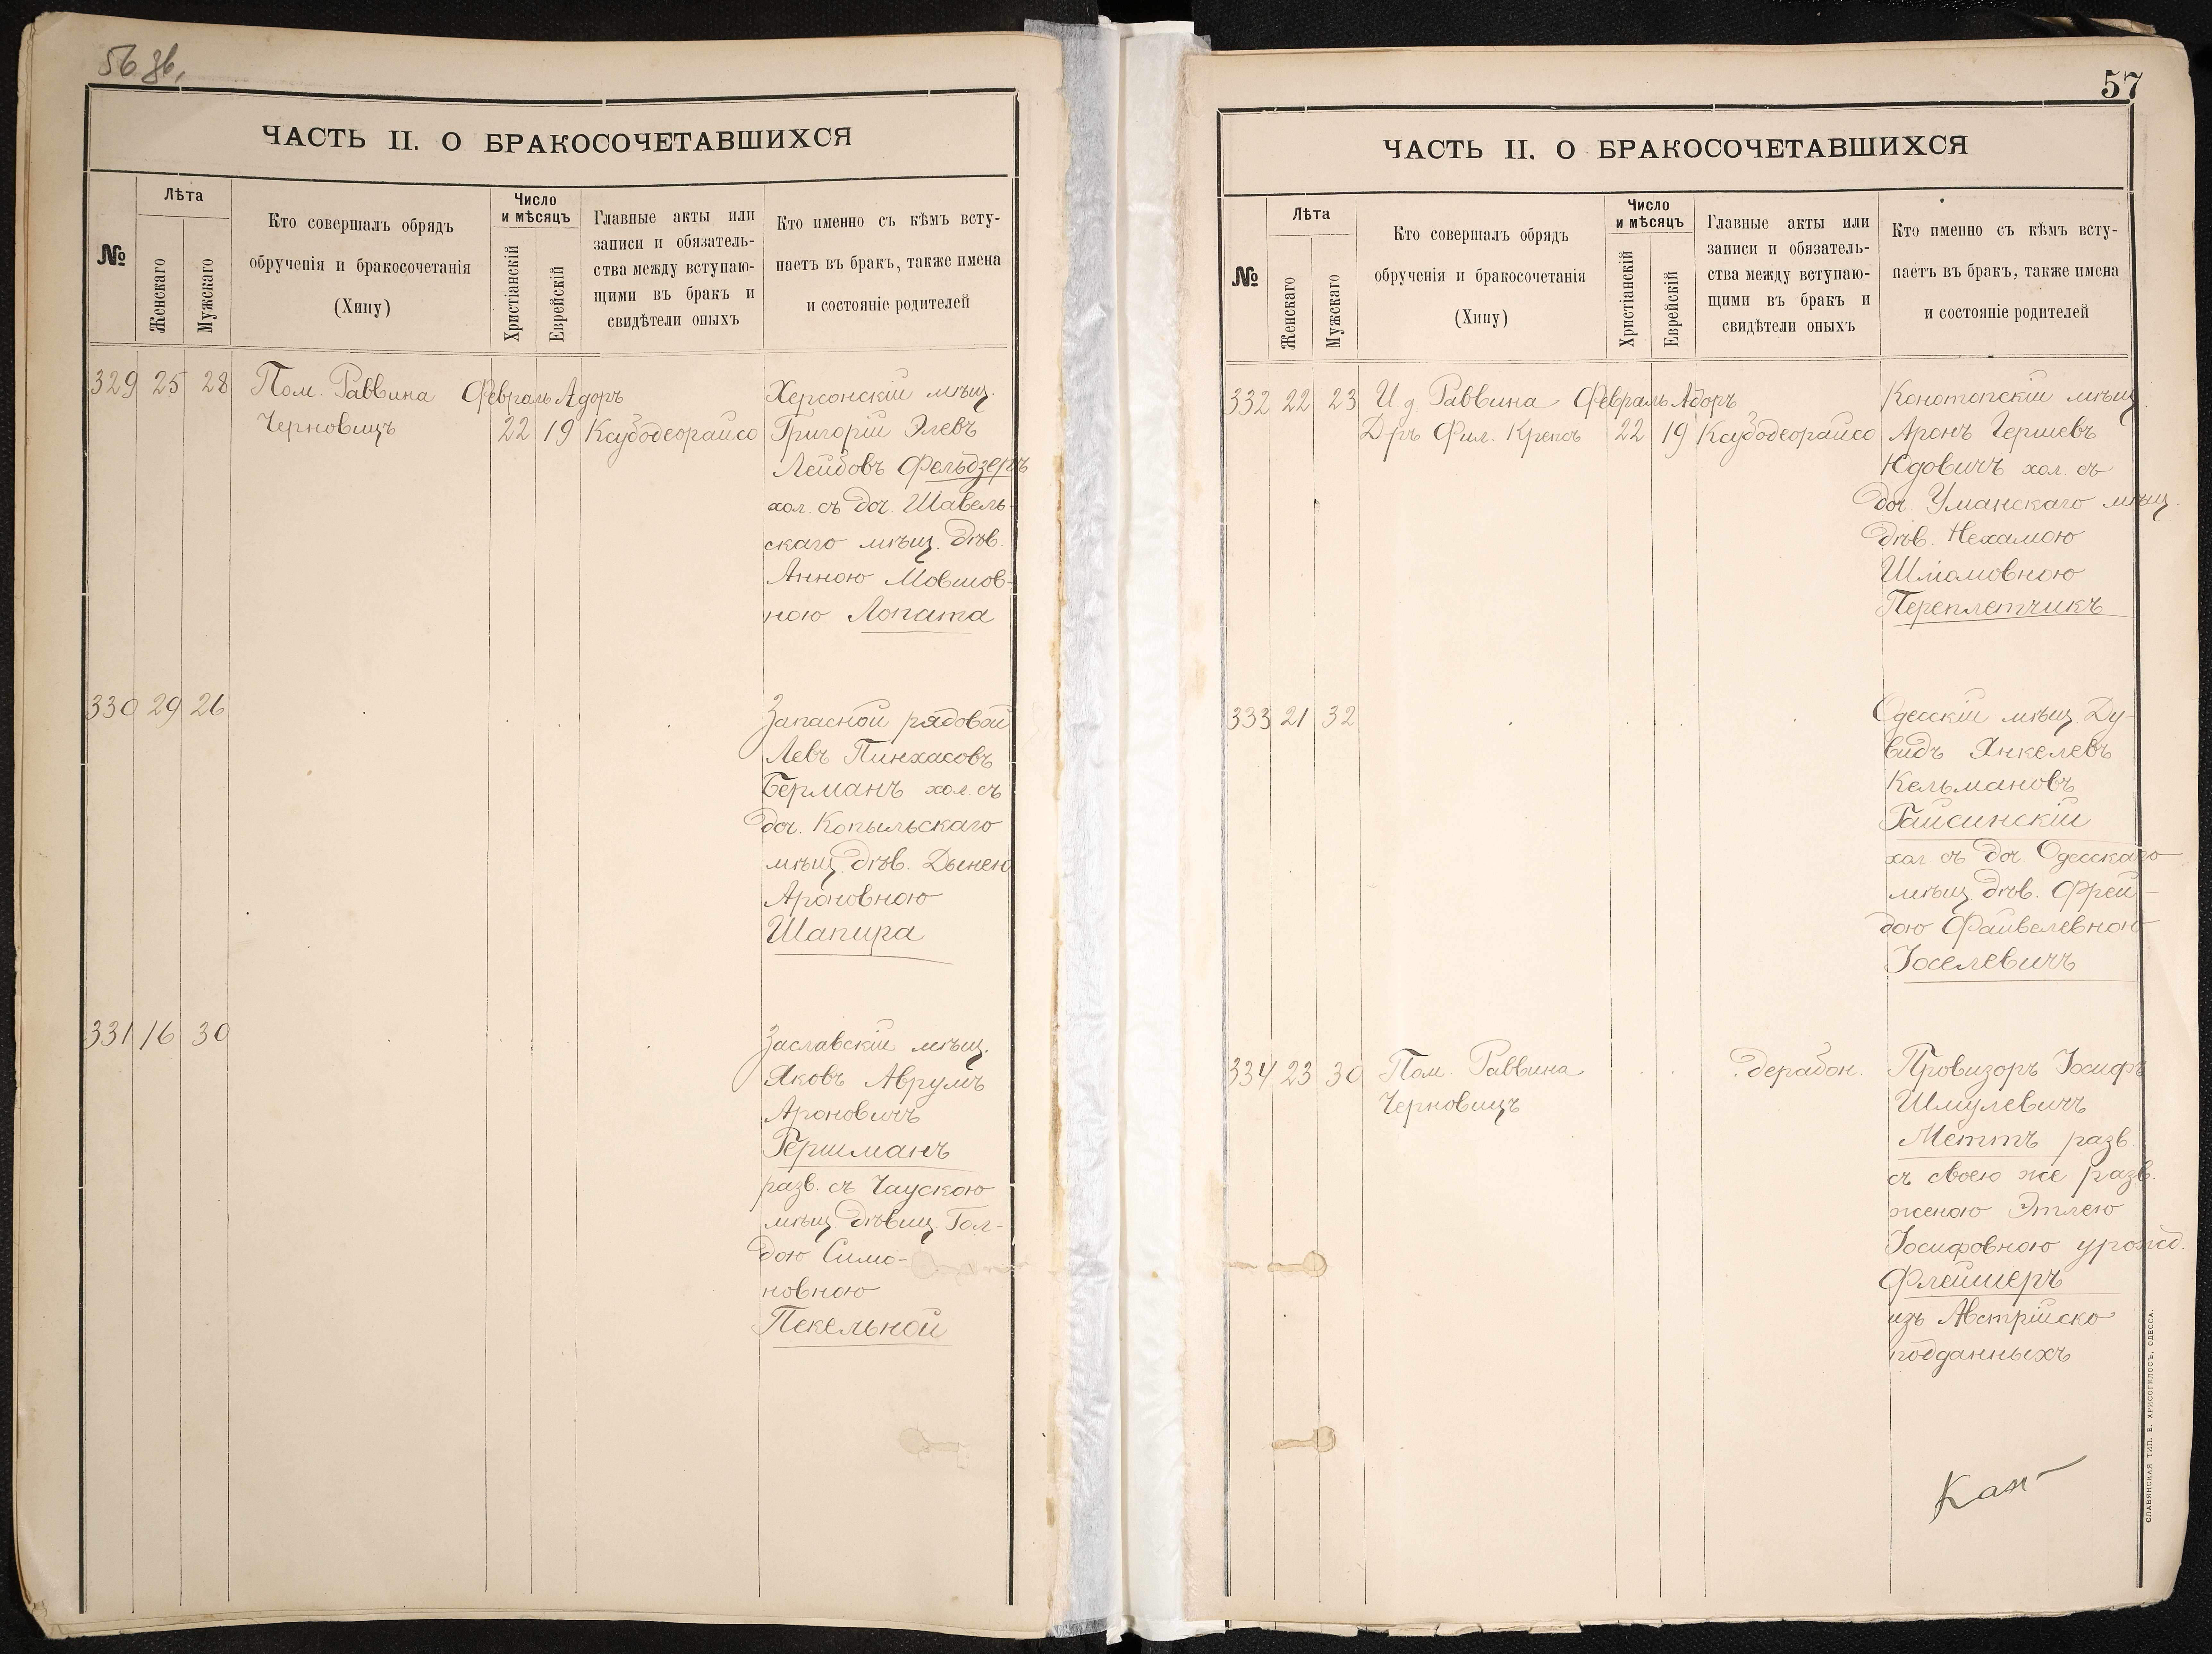 56 зв.
ЧАСТЬ II. О БРАКОСОЧЕТАВШИХСЯ
№
Лѣта
Женскаго
Мужскаго
Кто совершалъ обрядъ
обрученія и бракосочетанія
(Хипу)
Число
и мѣсяцъ
Христіанскій
Еврейскій
Главные акты или
записи и обязатель-
ства между вступаю-
щими въ бракъ и
свидѣтели оныхъ
Кто именно съ кѣмъ всту-
паетъ въ бракъ, также имена
и состояніе родителей
329 25 28 Пом. Раввина Февраль Адоръ
Черновицъ 22 19 Ксубодеорайсо
Херсонскій мѣщ.
Григорій Элевъ
Лейбовъ Фельдзеръ
хол. съ доч. Шавель-
скаго мѣщ. дѣв.
Анною Мовшов-
ною Лопата
330 29 26
Запасной рядовой
Левъ Пинхасовъ
Берманъ хол. съ
доч. Копыльскаго
мѣщ. дѣв. Дынею
Ароновною
Шапира
331 16 30
Заславскій мѣщ.
Яковъ Аврумъ
Ароновичъ
Гершманъ
разв. съ Чаускою
мѣщ. дѣвиц. Гол-
дою Симо-
новною
Пекельной
57
ЧАСТЬ II. О БРАКОСОЧЕТАВШИХСЯ
№
Лѣта
Женскаго
Мужскаго
Кто совершалъ обрядъ
обрученія и бракосочетанія
(Хипу)
Число
и мѣсяцъ
Христіанскій
Еврейскій
Главные акты или
записи и обязатель-
ства между вступаю-
щими въ бракъ и
свидѣтели оныхъ
Кто именно съ кѣмъ всту-
паетъ въ бракъ, также имена
и состояніе родителей
332 22 23 И. д. Раввина Февраль Адоръ
Д-ръ Фил. Крепсъ 22 19 Ксубодеорайсо
Конотопскій мѣщ.
Аронъ Гершевъ
Юдовичъ хол. съ
доч. Уманскаго мѣщ.
дѣв. Нехамою
Шліомовною
Переплетчикъ
333 21 32
Одесскій мѣщ. Ду-
видъ Янкелевъ
Кельмановъ
Гайсинскій
хол. съ доч. Одесскаго
мѣщ. дѣв. Фрей-
дою Файвелевною
Іоселевичъ
334 23 30 Пом. Раввина дерабон.
Черновицъ
Провизоръ Іосифъ
Шмулевичъ
Меттъ разв.
съ своею же разв.
женою Этлею
Іосифовною урожд.
Флейшеръ
изъ Австрійско
подданныхъ
СЛАВЯНСКАЯ ТИП. Е. ХРИСОГЕЛОСЪ, ОДЕССА.